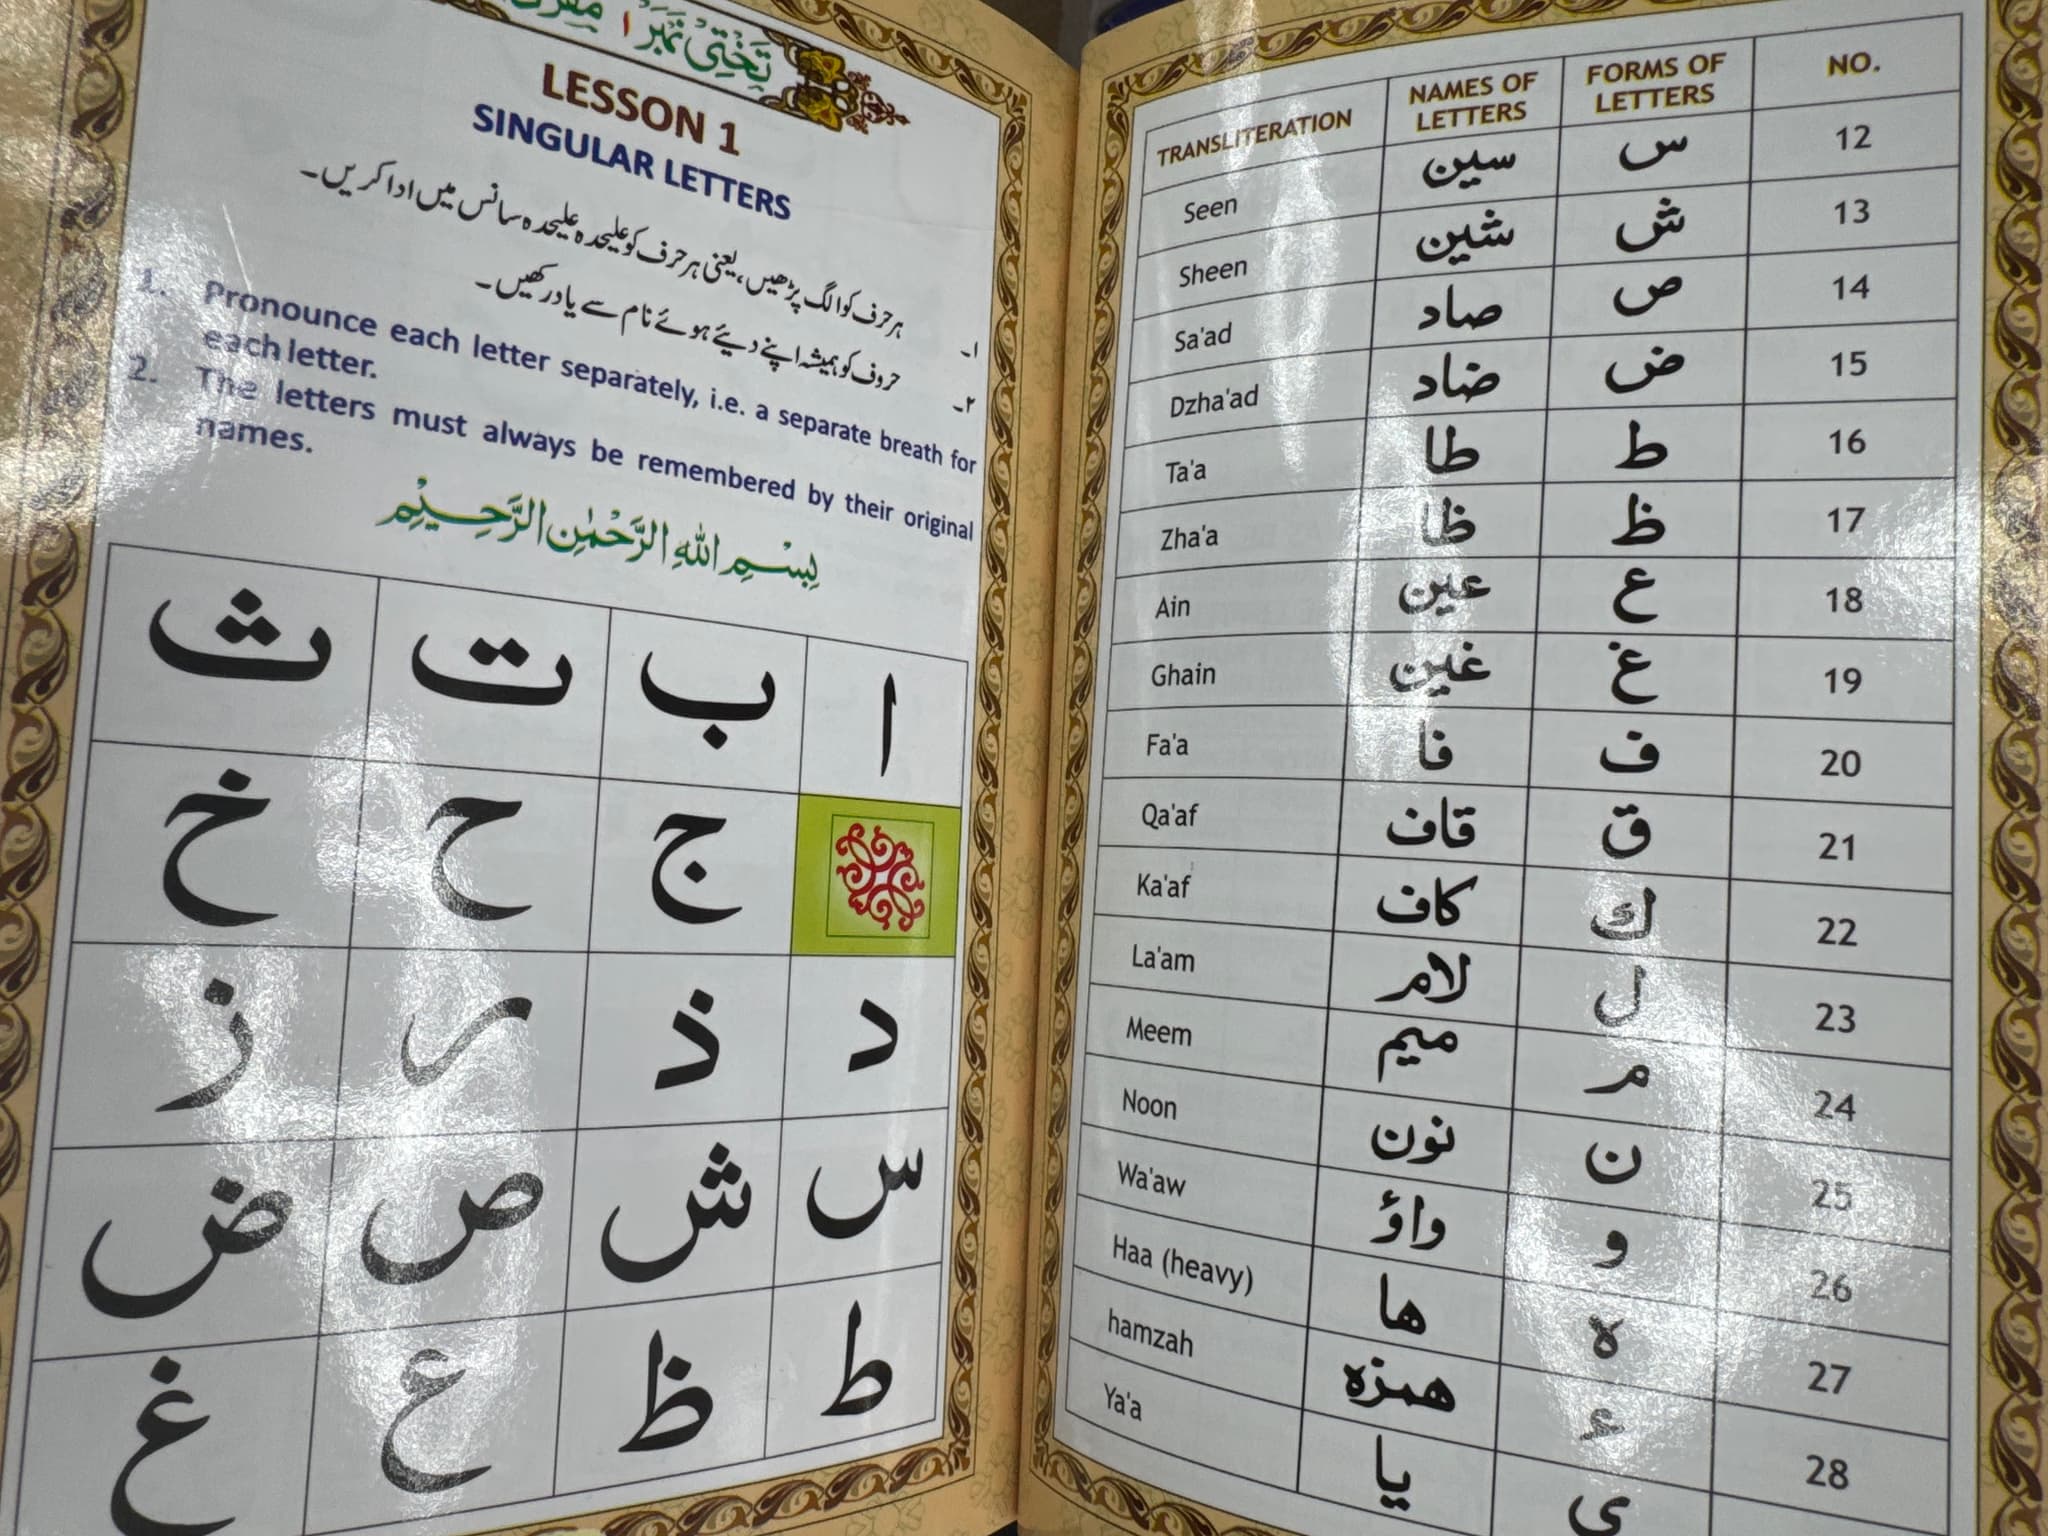 تَخْتِیْ نَمْبَر ۱
LESSON 1
SINGULAR LETTERS
۱۔ ہر حرف کو الگ پڑھیں، یعنی ہر حرف کو علیحدہ علیحدہ سانس میں ادا کریں۔
۲۔ حروف کو ہمیشہ اپنے دیئے ہوئے نام سے یاد رکھیں۔
1. Pronounce each letter separately, i.e. a separate breath for
each letter.
2. The letters must always be remembered by their original
names.
بِسْمِ اللهِ الرَّحْمٰنِ الرَّحِيْمِ
ا ب ت ث
ج ح خ
د ذ ر ز
س ش ص ض
ط ظ ع غ
TRANSLITERATION NAMES OF LETTERS FORMS OF LETTERS NO.
Seen سين س 12
Sheen شين ش 13
Sa'ad صاد ص 14
Dzha'ad ضاد ض 15
Ta'a طا ط 16
Zha'a ظا ظ 17
Ain عين ع 18
Ghain غين غ 19
Fa'a فا ف 20
Qa'af قاف ق 21
Ka'af كاف ك 22
La'am لام ل 23
Meem ميم م 24
Noon نون ن 25
Wa'aw واؤ و 26
Haa (heavy) ها ه 27
hamzah همزه ء 28
Ya'a يا ى